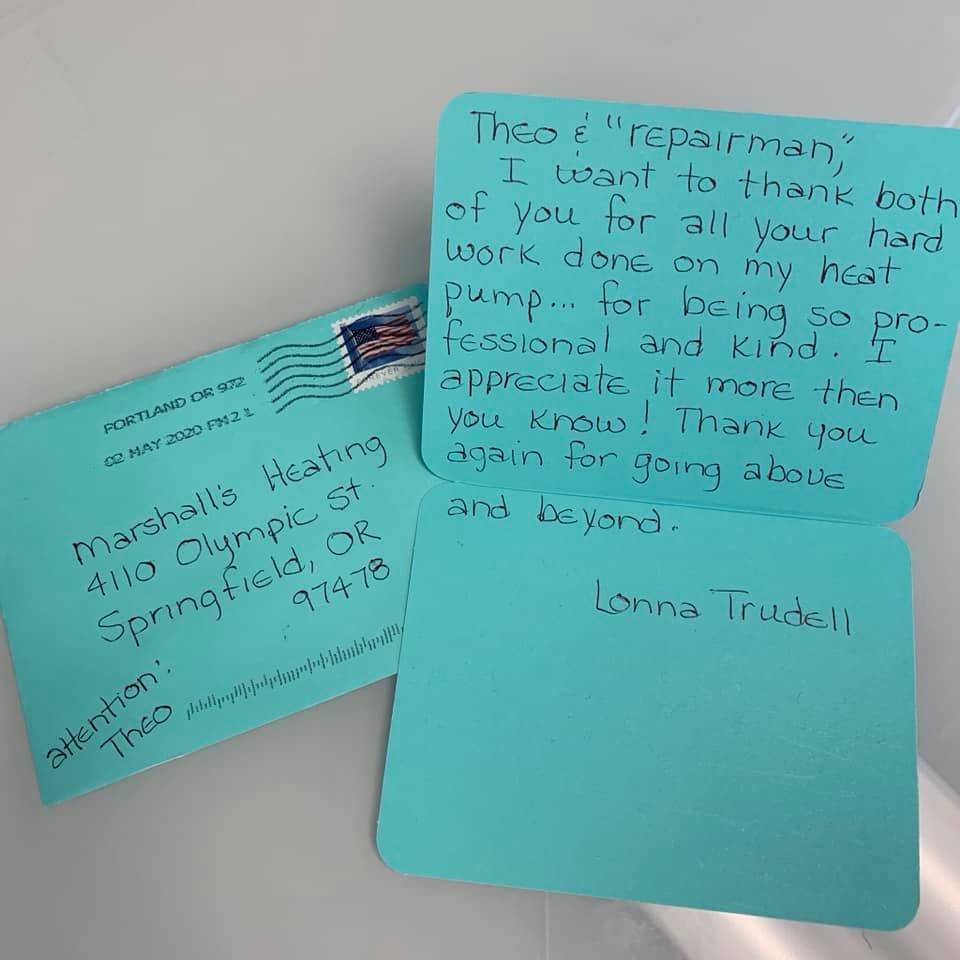 PORTLAND OR 972
02 MAY 2020 PM 2 L
FOREVER
Marshall's Heating
4110 Olympic St.
Springfield, OR
97478
attention:
Theo
Theo & "repairman,"
I want to thank both
of you for all your hard
work done on my heat
pump... for being so pro-
fessional and kind. I
appreciate it more then
you know! Thank you
again for going above
and beyond.
Lonna Trudell